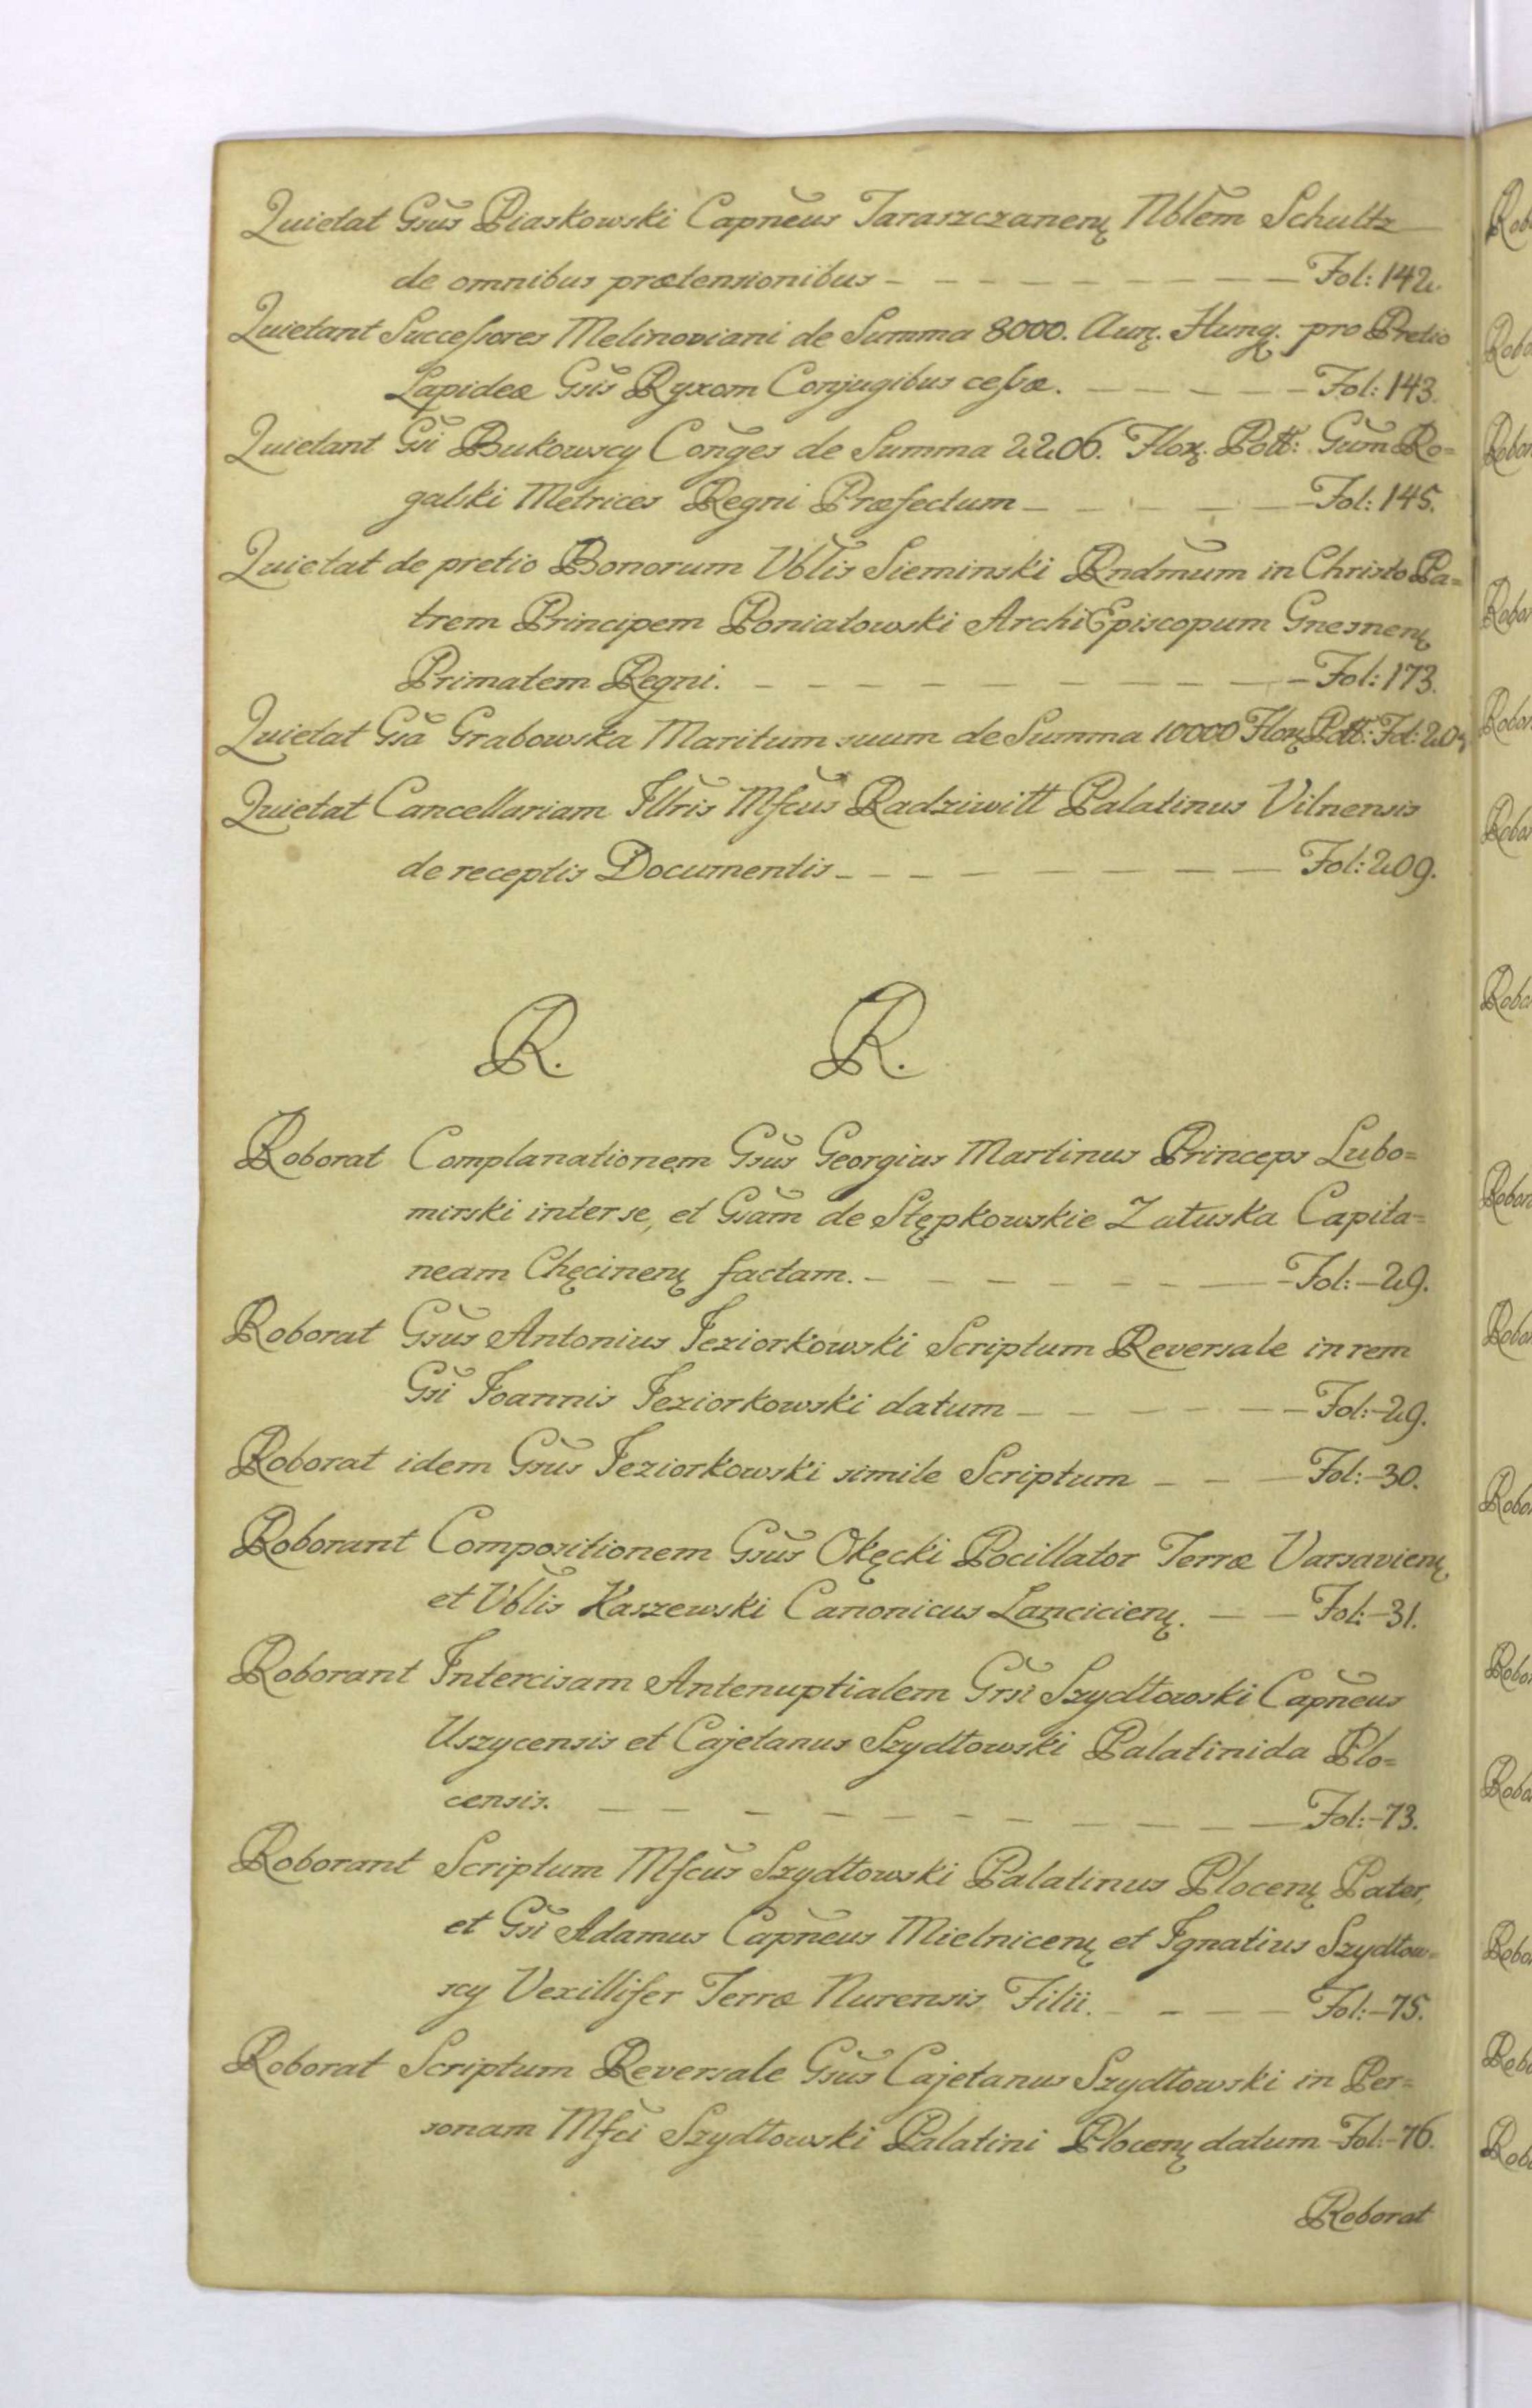 Quietat Gsus Piaskowski Capneus Taraszczanen Nblem Schultz
de omnibus prætensionibus - - - - - - - - - Fol: 142.
Quietant Successores Melinoviani de Summa 8000. Aur. Hung. pro Pretio
Lapideæ Gsis Ryxom Conjugibus cessæ. - - - - - Fol: 143.
Quietant Gsi Bukowscy Conges de Summa 2206. Flor. Poll: Gsum Ro=
galski Metrices Regni Præfectum - - - - - Fol: 145.
Quietat de pretio Bonorum Vblis Sieminski Rndmum in Christo Pa=
trem Principem Poniatowski ArchiEpiscopum Gnesnen
Primatem Regni. - - - - - - - - - Fol: 173.
Quietat Gsa Grabowska Maritum suum de Summa 10000 Flor Poll: Fol:
Quietat Cancellariam Illris Mfcus Radziwitt Palatinus Vilnensis
de receptis Documentis - - - - - - - - Fol: 209.
R. R.
Roborat Complanationem Gsus Georgius Martinus Princeps Lubo=
mirski inter se, et Gsam de Stępkowskie Załuska Capita=
neam Chęcinen factam. - - - - - - - - Fol: -29.
Roborat Gsus Antonius Jeziorkowski Scriptum Reversale in rem
Gsi Joannis Jeziorkowski datum - - - - - - Fol: -29.
Roborat idem Gsus Jeziorkowski simile Scriptum - - - Fol: -30.
Roborant Compositionem Gsus Okęcki Pocillator Terræ Varsavien
et Vblis Kaszewski Canonicus Lancicien. - - Fol: -31.
Roborant Intercisam Antenuptialem Grsi Szydłowski Capneus
Uszycensis et Cajetanus Szydłowski Palatinida Plo=
censis. - - - - - - - - - - Fol: -73.
Roborant Scriptum Mfcus Szydłowski Palatinus Plocen Pater,
et Gsi Adamus Capneus Mielnicen et Ignatius Szydłow=
scy Vexillifer Terræ Nurensis Filii. - - - - Fol: -75.
Roborat Scriptum Reversale Gsus Cajetanus Szydłowski in Per=
sonam Mfci Szydłowski Palatini Plocen datum - Fol: -76.
Roborat